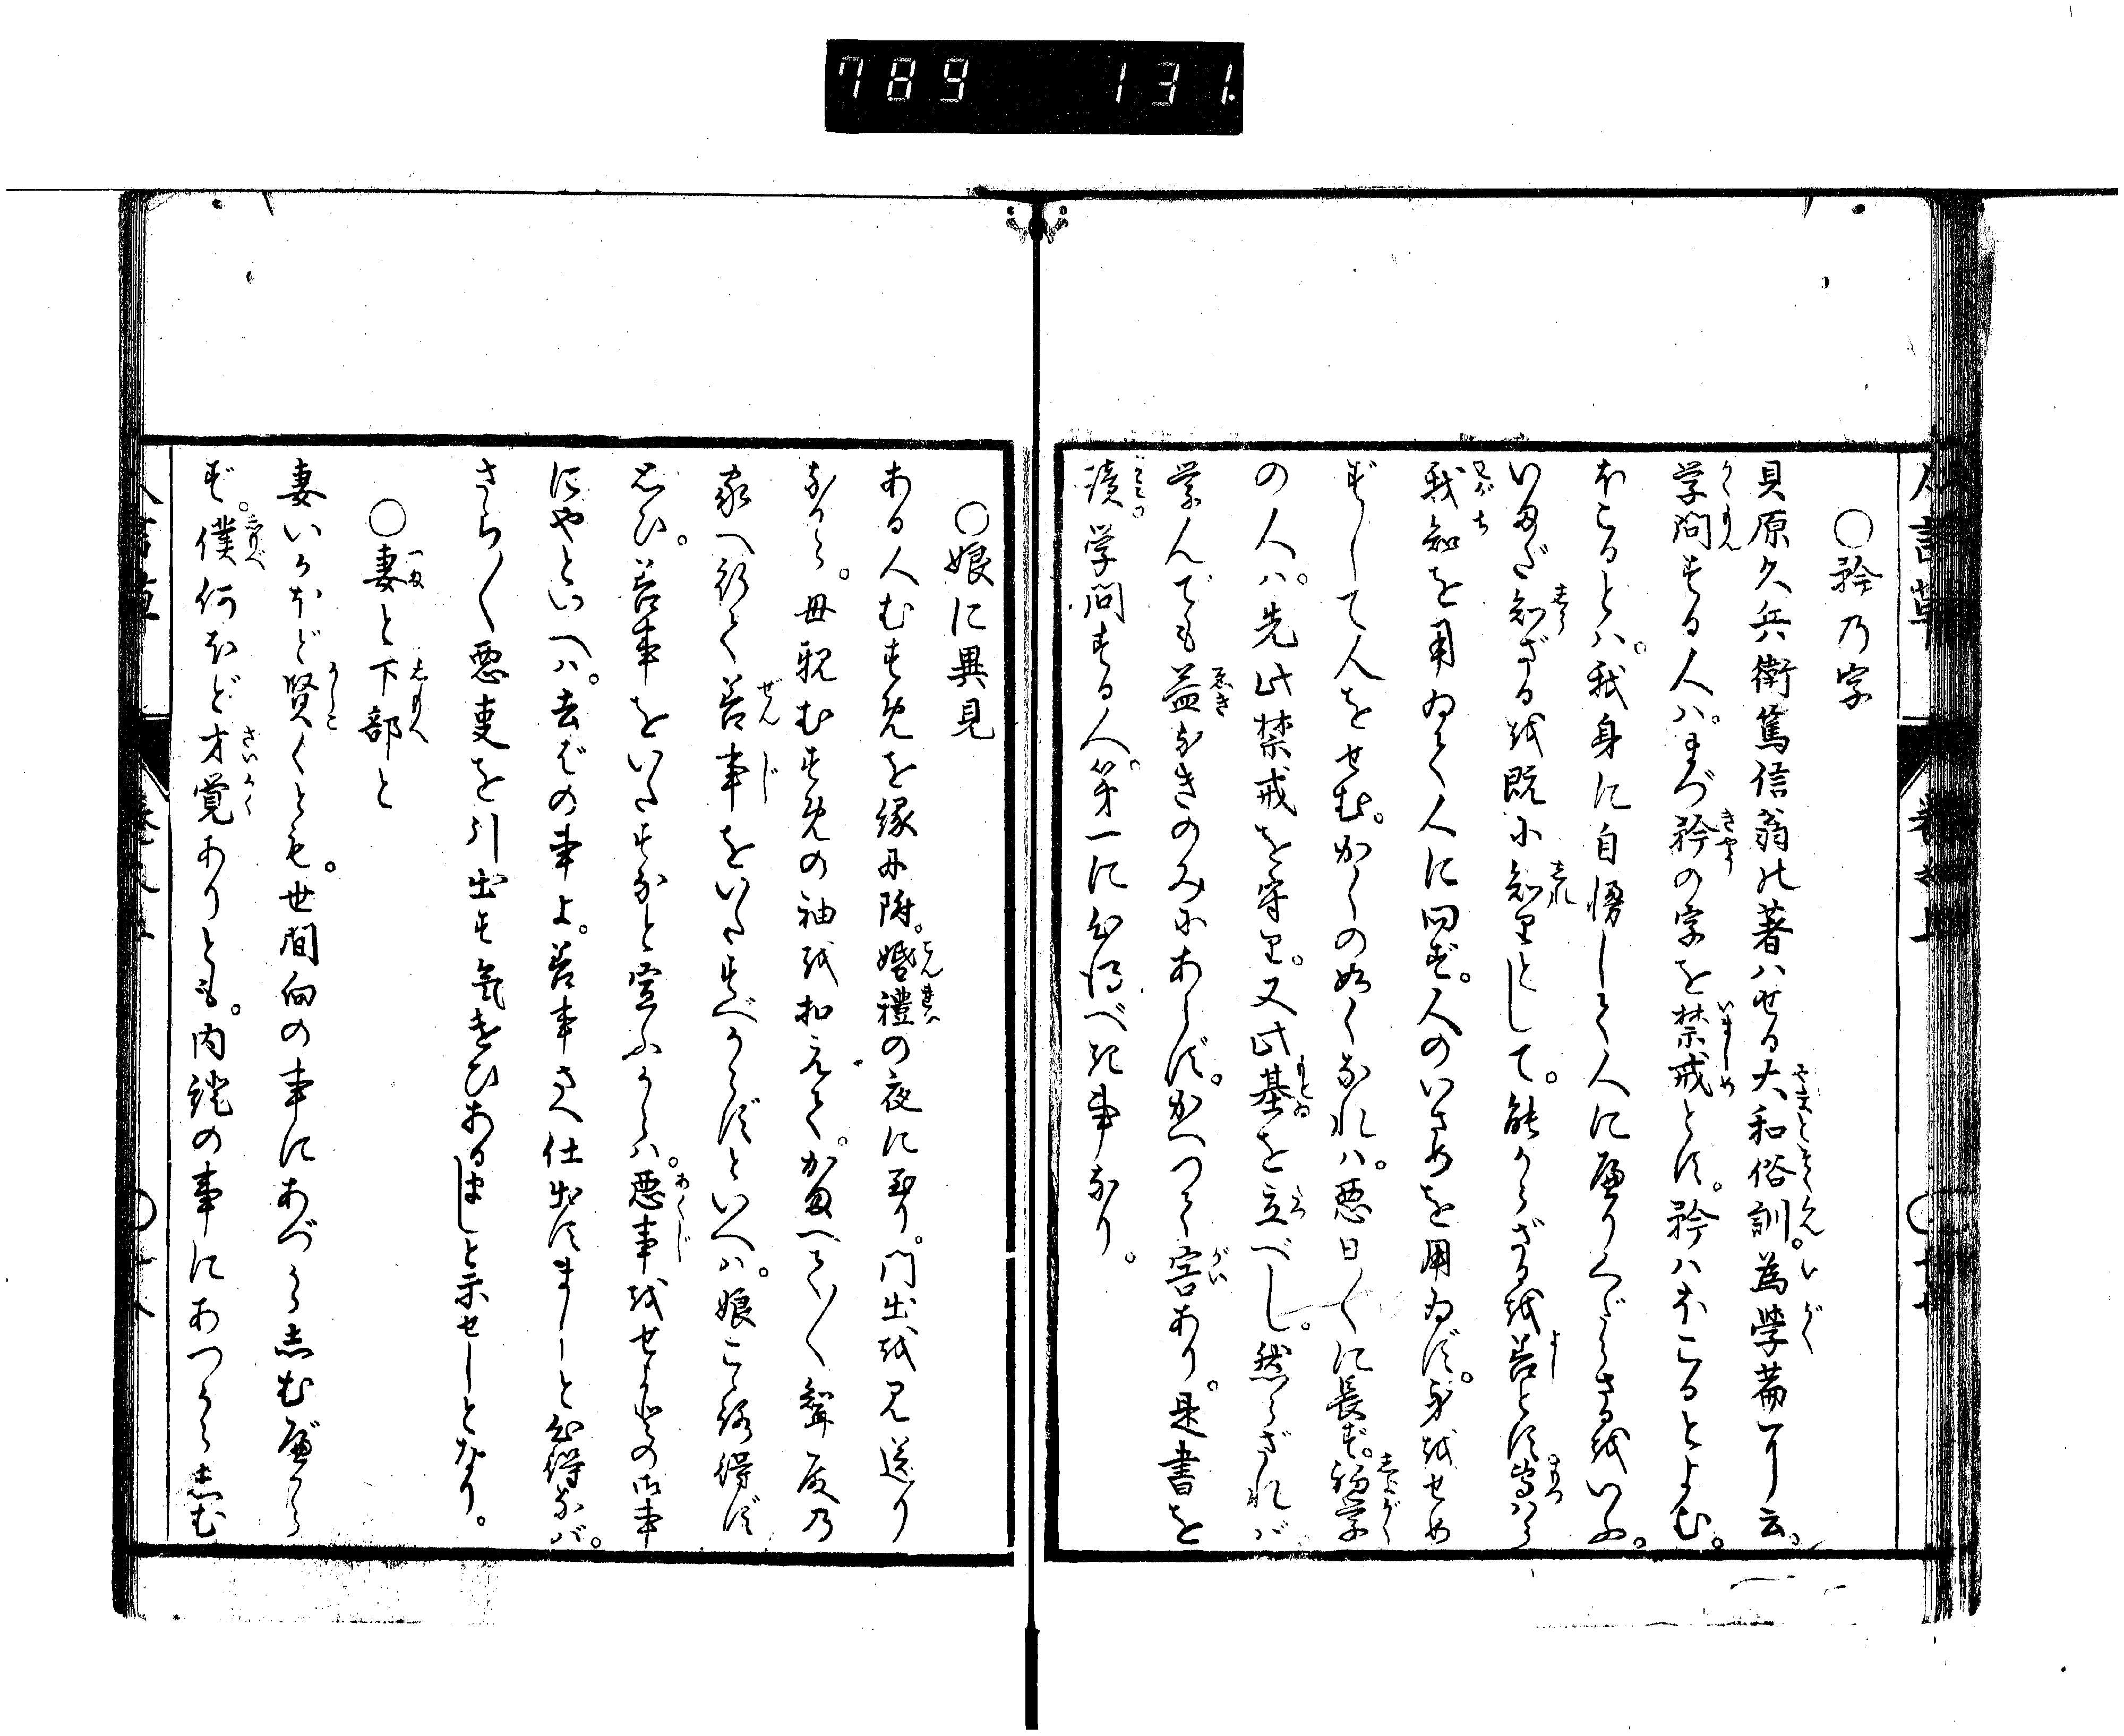 789 131
○矜乃字
貝原久兵衛篤信翁の著ハせる大和俗訓。為學篇に云。
学問する人ハ。まづ矜の字を禁戒とす。矜ハほこるとよむ。
ほこるとハ。我身に自慢して人に
いまだ知ざるを既に知れりとして。能からざるを善とす
我知を用ゐて人に問ず。人のいさめを用ゐず。身をせめ
ずして人をせむ。かくの如くなれハ。悪日〱に長ず。初学
の人ハ。先此禁戒を守り。又此基を立べし。然らざれバ
学んでも益なきのみにあらず。かへつて害あり。是書を
読。学問する人。第一に心得べき事なり。
○娘に異見
ある人むすめを縁に附。婚禮の夜に至り。門出を見送り
ながら。母親むすめの袖を扣えて。かまへて〱聟殿の
家へ行て善事をいたすべからずといへハ。娘こゝろ得ず
思ひ。善事をいたすなと宣ふからハ。悪事をせよとの御事
にやといへハ。去ばの事よ。善事さへ仕出すまじと心得なバ。
さら〱悪事を引出す気遣ひあるまじと示せしとなり。
○妻と下部と
妻いかほど賢くとも。世間向の事にあづからしむべから
ず。僕何ほど才覚ありとも。内證の事にあづからしむ